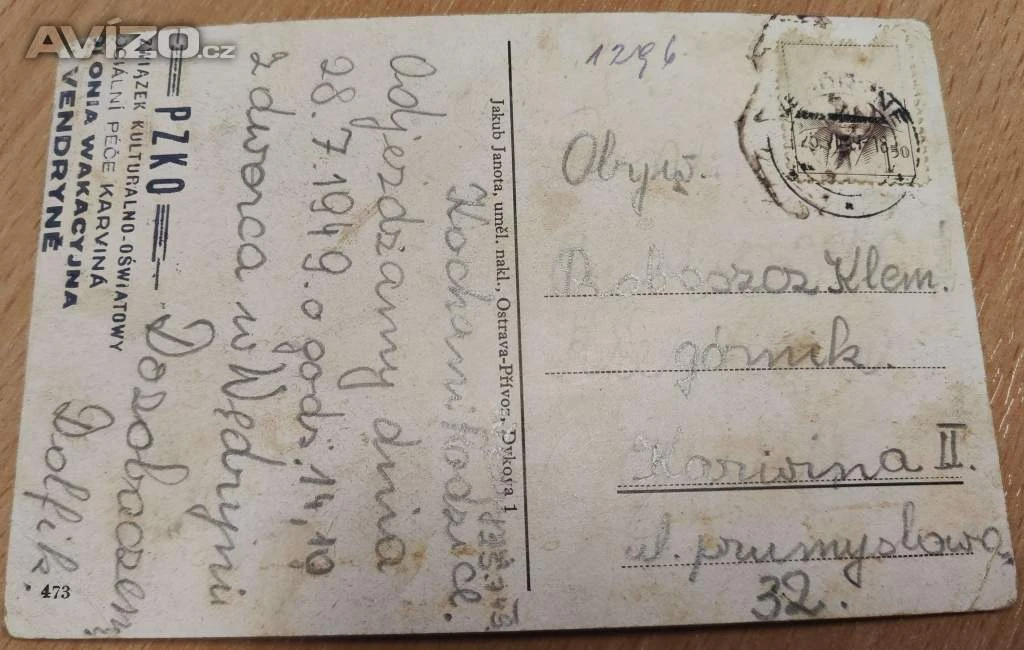 Avizo.cz
PZKO
ZWIĄZEK KULTURALNO-OŚWIATOWY
SOCIÁLNÍ PÉČE KARVINÁ
KOLONIA WAKACYJNA
VENDRYNĚ
25.7.49.
Kochani Rodzice.
Odjeżdżamy dnia
28.7.1949. o godz. 14,10
z dworca w Wędryni
Do zobaczenia
Dolfik.
473
Jakub Janota, uměl. nakl., Ostrava-Přívoz, Dykova 1
1296
Klem.
górnik.
Karwina II.
ul. przemysłowa
32.